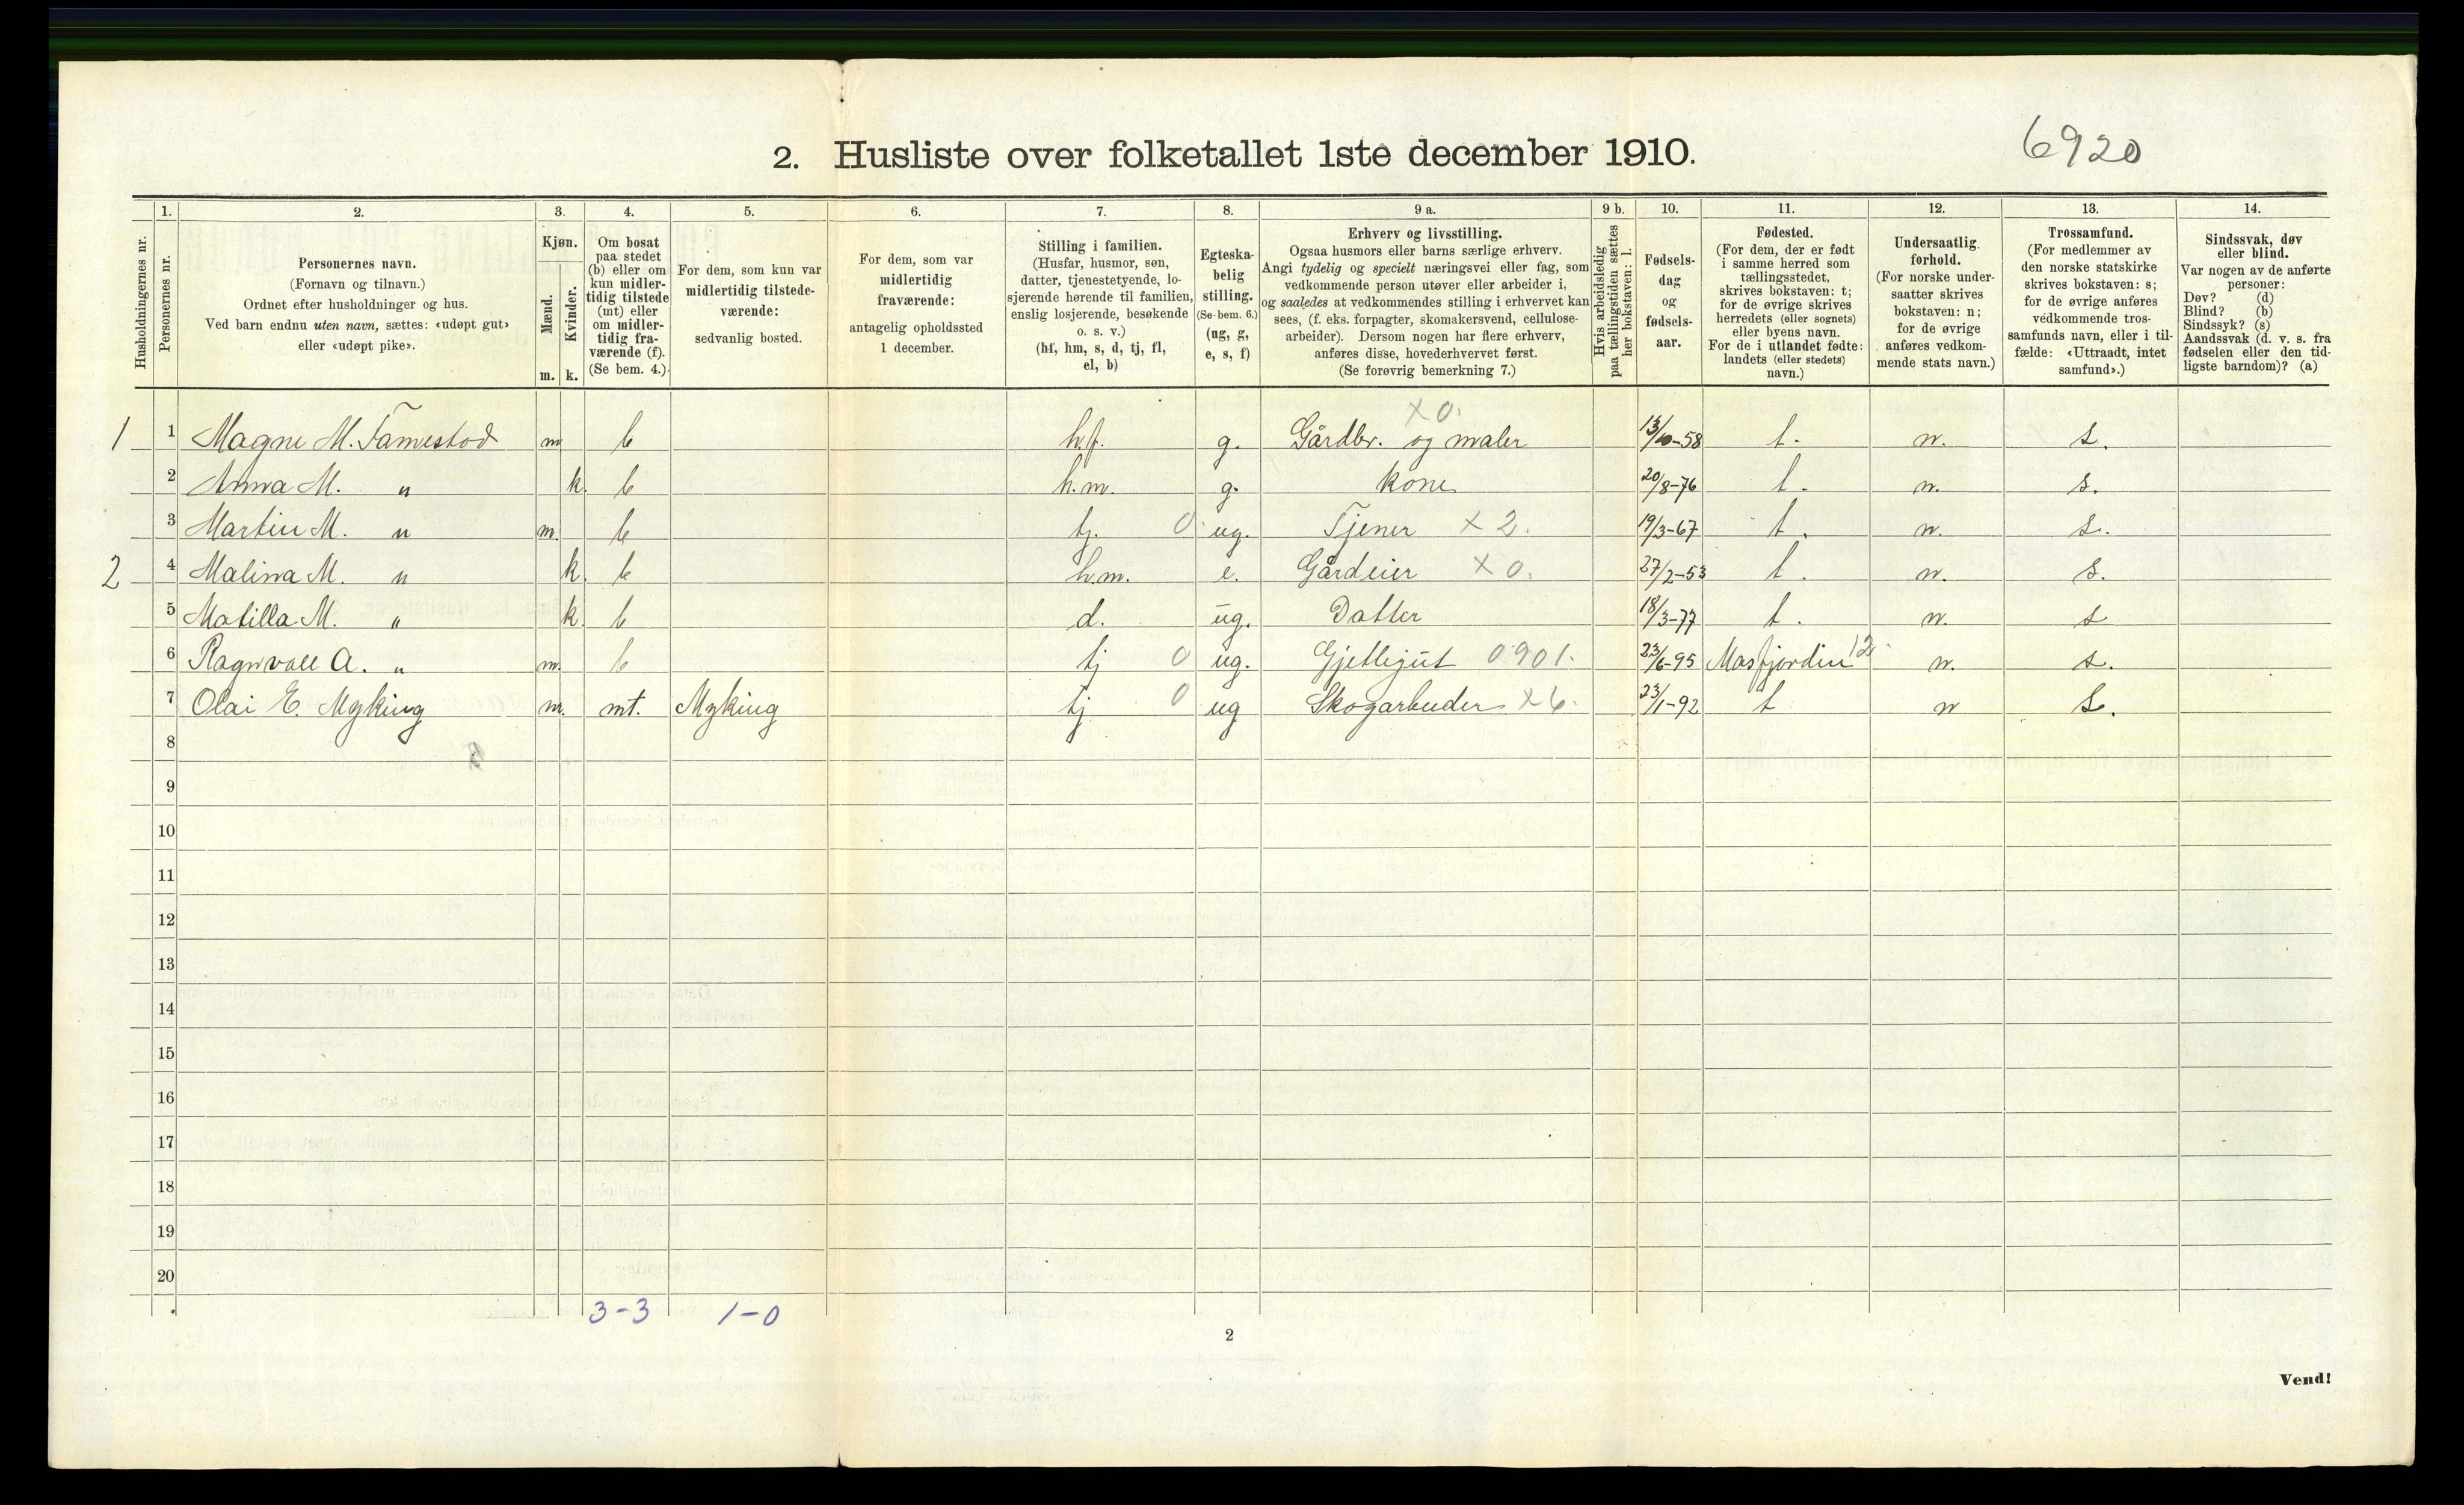 2. Husliste over folketallet 1ste december 1910.
6920
1. 2. 3. 4. 5. 6. 7. 8. 9 a. 9 b. 10. 11. 12. 13. 14.
Husholdningernes nr.
Personernes nr.
Personernes navn.
(Fornavn og tilnavn.)
Ordnet efter husholdninger og hus.
Ved barn endnu uten navn, sættes: «udøpt gut»
eller «udøpt pike».
Kjøn.
Mænd.
Kvinder.
m. k.
Om bosat
paa stedet
(b) eller om
kun midler-
tidig tilstede
(mt) eller
om midler-
tidig fra-
værende (f).
(Se bem. 4.)
For dem, som kun var
midlertidig tilstede-
værende:
sedvanlig bosted.
For dem, som var
midlertidig
fraværende:
antagelig opholdssted
1 december.
Stilling i familien.
(Husfar, husmor, søn,
datter, tjenestetyende, lo-
sjerende hørende til familien,
enslig losjerende, besøkende
o. s. v.)
(hf, hm, s, d, tj, fl,
el, b)
Egteska-
belig
stilling.
(Se bem. 6.)
(ug, g,
e, s, f)
Erhverv og livsstilling.
Ogsaa husmors eller barns særlige erhverv.
Angi tydelig og specielt næringsvei eller fag, som
vedkommende person utøver eller arbeider i,
og saaledes at vedkommendes stilling i erhvervet kan
sees, (f. eks. forpagter, skomakersvend, cellulose-
arbeider). Dersom nogen har flere erhverv,
anføres disse, hovederhvervet først.
(Se forøvrig bemerkning 7.)
Hvis arbeidsledig
paa tællingstiden sættes
her bokstaven: l.
Fødsels-
dag
og
fødsels-
aar.
Fødested.
(For dem, der er født
i samme herred som
tællingsstedet,
skrives bokstaven: t;
for de øvrige skrives
herredets (eller sognets)
eller byens navn.
For de i utlandet fødte:
landets (eller stedets)
navn.)
Undersaatlig
forhold.
(For norske under-
saatter skrives
bokstaven: n;
for de øvrige
anføres vedkom-
mende stats navn.)
Trossamfund.
(For medlemmer av
den norske statskirke
skrives bokstaven: s;
for de øvrige anføres
vedkommende tros-
samfunds navn, eller i til-
fælde: «Uttraadt, intet
samfund».)
Sindssvak, døv
eller blind.
Var nogen av de anførte
personer:
Døv? (d)
Blind? (b)
Sindssyk? (s)
Aandssvak (d. v. s. fra
fødselen eller den tid-
ligste barndom)? (a)
X 0.
1 1 Magne M. Tamestod m b hf. g. Gårdbr. og maler 13/10-58 t. n. s.
2 Anna M. " k. b h.m. g. Kone 20/8-76 t. n. s.
3 Martin M. " m. b tj. 0 ug. Tjener X 2. 19/3-67 t. n. s.
2 4 Malina M. " k. b h.m. e. Gårdeier X 0. 27/2-53 t. n. s.
5 Matilla M. " k. b d. ug. Datter 18/3-77 t. n. s
6 Ragnvall A. " m. b tj 0 ug. Gjetlegut 0901. 23/6-95 Masfjorden 12 n. s.
7 Olai E. Myking m. mt. Myking tj 0 ug Skogarbeider X 6. 23/1-92 t n s.
8
9
10
11
12
13
14
15
16
17
18
19
20
3-3 1-0
2
Vend!